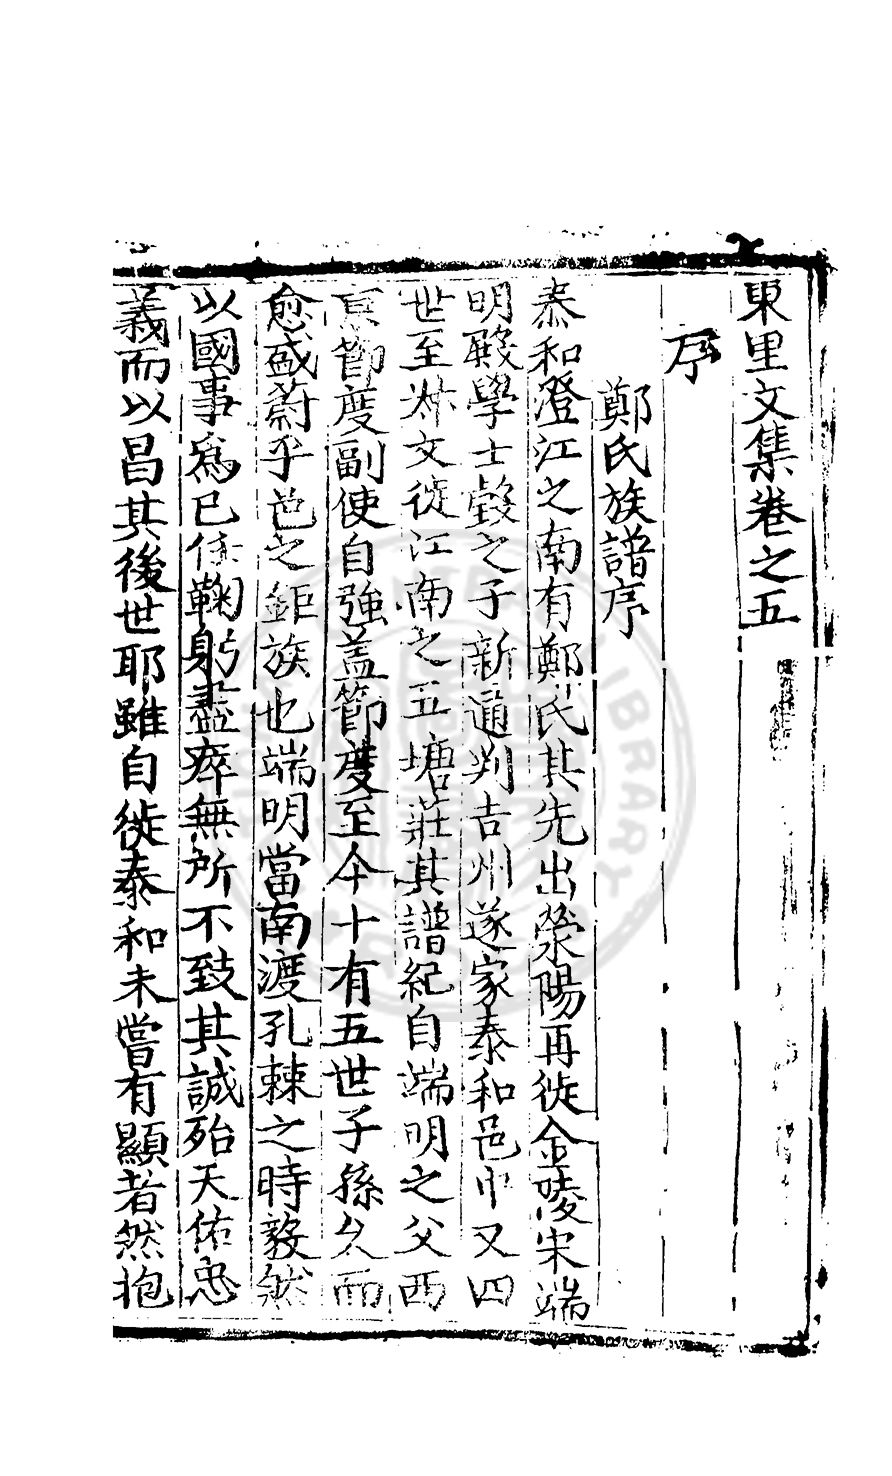 東里文集卷之五
序
鄭氏族譜序
泰和澄江之南有鄭氏其先出滎陽再徙金陵宋端
明殿學士瑴之子新通判吉州遂家泰和邑中又四
世至淋文徙江南之五塘莊其譜紀自端明之父西
京節度副使自強盖節度至今十有五世子孫久而
愈盛蔚乎邑之鉅族也端明當南渡孔棘之時毅然
以國事爲已任鞠躬盡瘁無所不致其誠殆天佑忠
義而以昌其後世耶雖自徙泰和未嘗有顯者然抱
LIBRARY